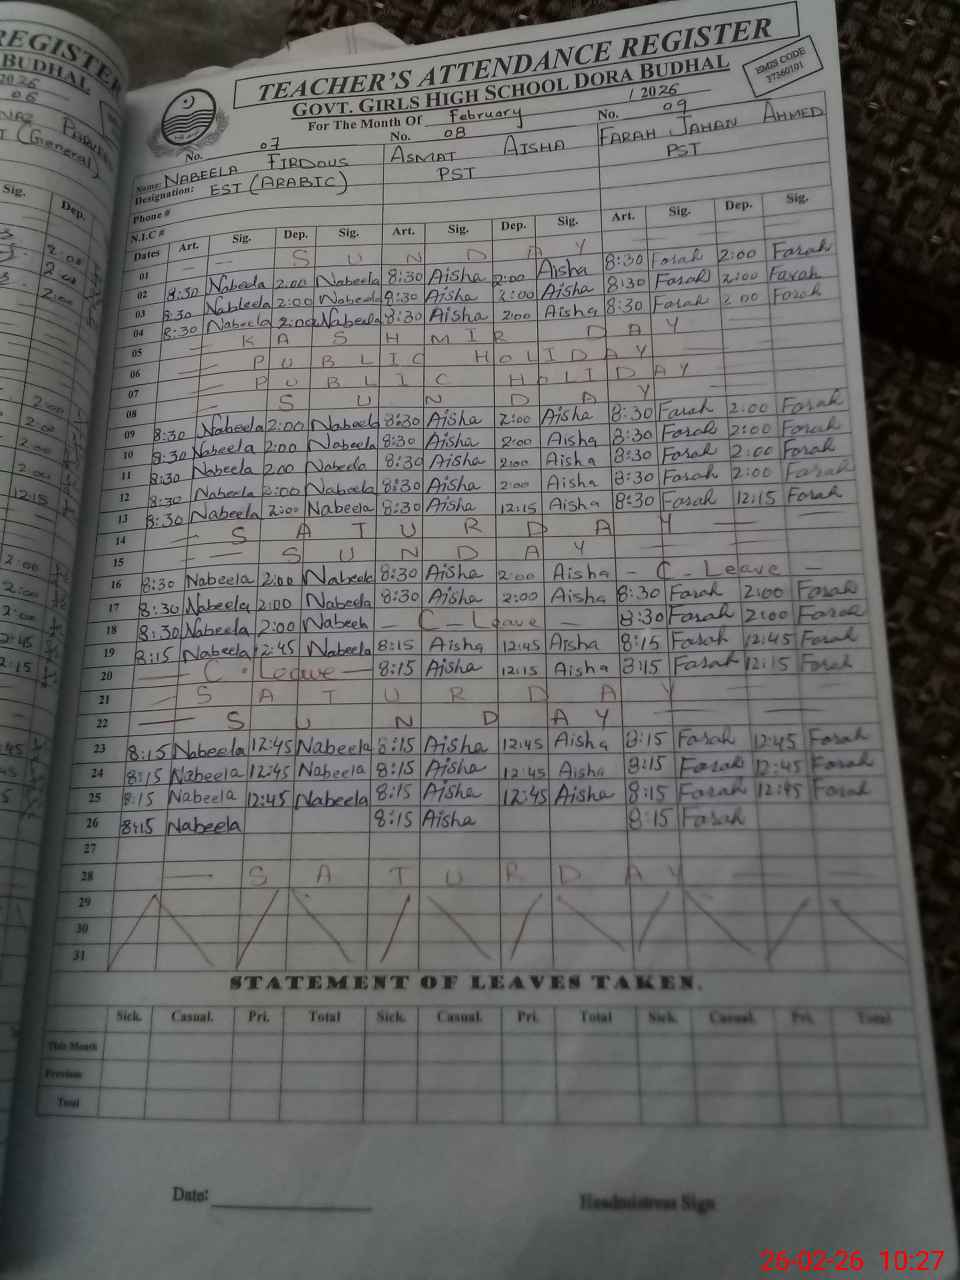 REGISTER
BUDHAL
2026
06
(General)
Sig.
Dep.
TEACHER'S ATTENDANCE REGISTER
GOVT. GIRLS HIGH SCHOOL DORA BUDHAL
EMIS CODE
37350101
For The Month Of February / 2026
No. 07 No. 08 No. 09
Name: NABEELA FIRDOUS ASMAT AISHA FARAH JAHAN AHMED
Designation: EST (ARABIC) PST PST
Phone #
N.I.C #
Dates Art. Sig. Dep. Sig. Art. Sig. Dep. Sig. Art. Sig. Dep. Sig.
01 — — S U N D A Y
02 8:30 Nabeela 2:00 Nabeela 8:30 Aisha 2:00 Aisha 8:30 Farah 2:00 Farah
03 8:30 Nabeela 2:00 Nabeela 8:30 Aisha 2:00 Aisha 8:30 Farah 2:00 Farah
04 8:30 Nabeela 2:00 Nabeela 8:30 Aisha 2:00 Aisha 8:30 Farah 2:00 Farah
05 — K A S H M I R D A Y
06 — P U B L I C H O L I D A Y
07 — P U B L I C H O L I D A Y
08 — S U N D A Y
09 8:30 Nabeela 2:00 Nabeela 8:30 Aisha 2:00 Aisha 8:30 Farah 2:00 Farah
10 8:30 Nabeela 2:00 Nabeela 8:30 Aisha 2:00 Aisha 8:30 Farah 2:00 Farah
11 8:30 Nabeela 2:00 Nabeela 8:30 Aisha 2:00 Aisha 8:30 Farah 2:00 Farah
12 8:30 Nabeela 2:00 Nabeela 8:30 Aisha 2:00 Aisha 8:30 Farah 2:00 Farah
13 8:30 Nabeela 2:00 Nabeela 8:30 Aisha 12:15 Aisha 8:30 Farah 12:15 Farah
14 — S A T U R D A Y —
15 — S U N D A Y —
16 8:30 Nabeela 2:00 Nabeela 8:30 Aisha 2:00 Aisha — C - Leave —
17 8:30 Nabeela 2:00 Nabeela 8:30 Aisha 2:00 Aisha 8:30 Farah 2:00 Farah
18 8:30 Nabeela 2:00 Nabeela — C - Leave — 8:30 Farah 2:00 Farah
19 8:15 Nabeela 12:45 Nabeela 8:15 Aisha 12:45 Aisha 8:15 Farah 12:45 Farah
20 — C - Leave — 8:15 Aisha 12:15 Aisha 8:15 Farah 12:15 Farah
21 — S A T U R D A Y —
22 — S U N D A Y —
23 8:15 Nabeela 12:45 Nabeela 8:15 Aisha 12:45 Aisha 8:15 Farah 12:45 Farah
24 8:15 Nabeela 12:45 Nabeela 8:15 Aisha 12:45 Aisha 8:15 Farah 12:45 Farah
25 8:15 Nabeela 12:45 Nabeela 8:15 Aisha 12:45 Aisha 8:15 Farah 12:45 Farah
26 8:15 Nabeela 8:15 Aisha 8:15 Farah
27
28 — S A T U R D A Y —
29
30
31
STATEMENT OF LEAVES TAKEN.
Sick. Casual. Pri. Total Sick. Casual. Pri. Total Sick. Casual. Pri. Total
This Month
Previous
Total
Date: Headmistress Sign
26-02-26 10:27